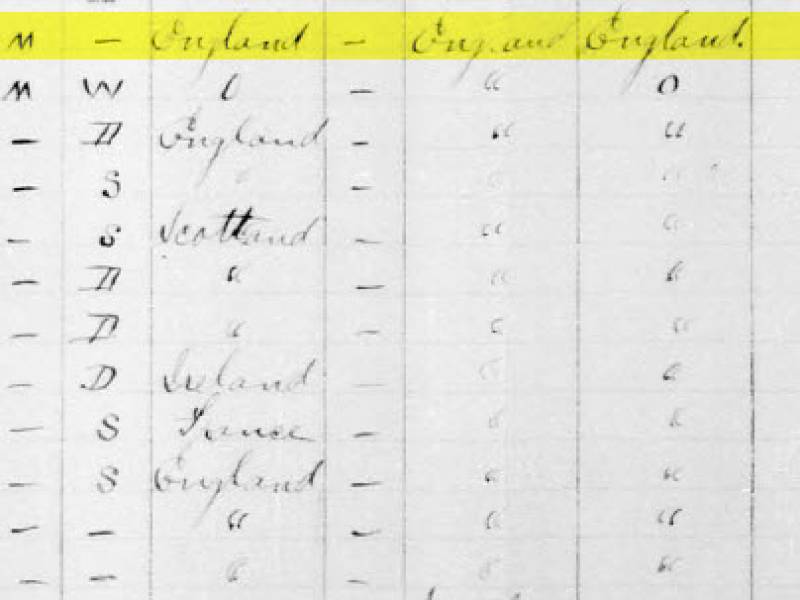 M - England - England England.
M W 0 - " 0
- D England - " "
- S " - " "
- S Scotland - " "
- D " - " "
- D " - " "
- D Ireland - " "
- S France - " "
- S England - " "
- - " - " "
- - " - " "